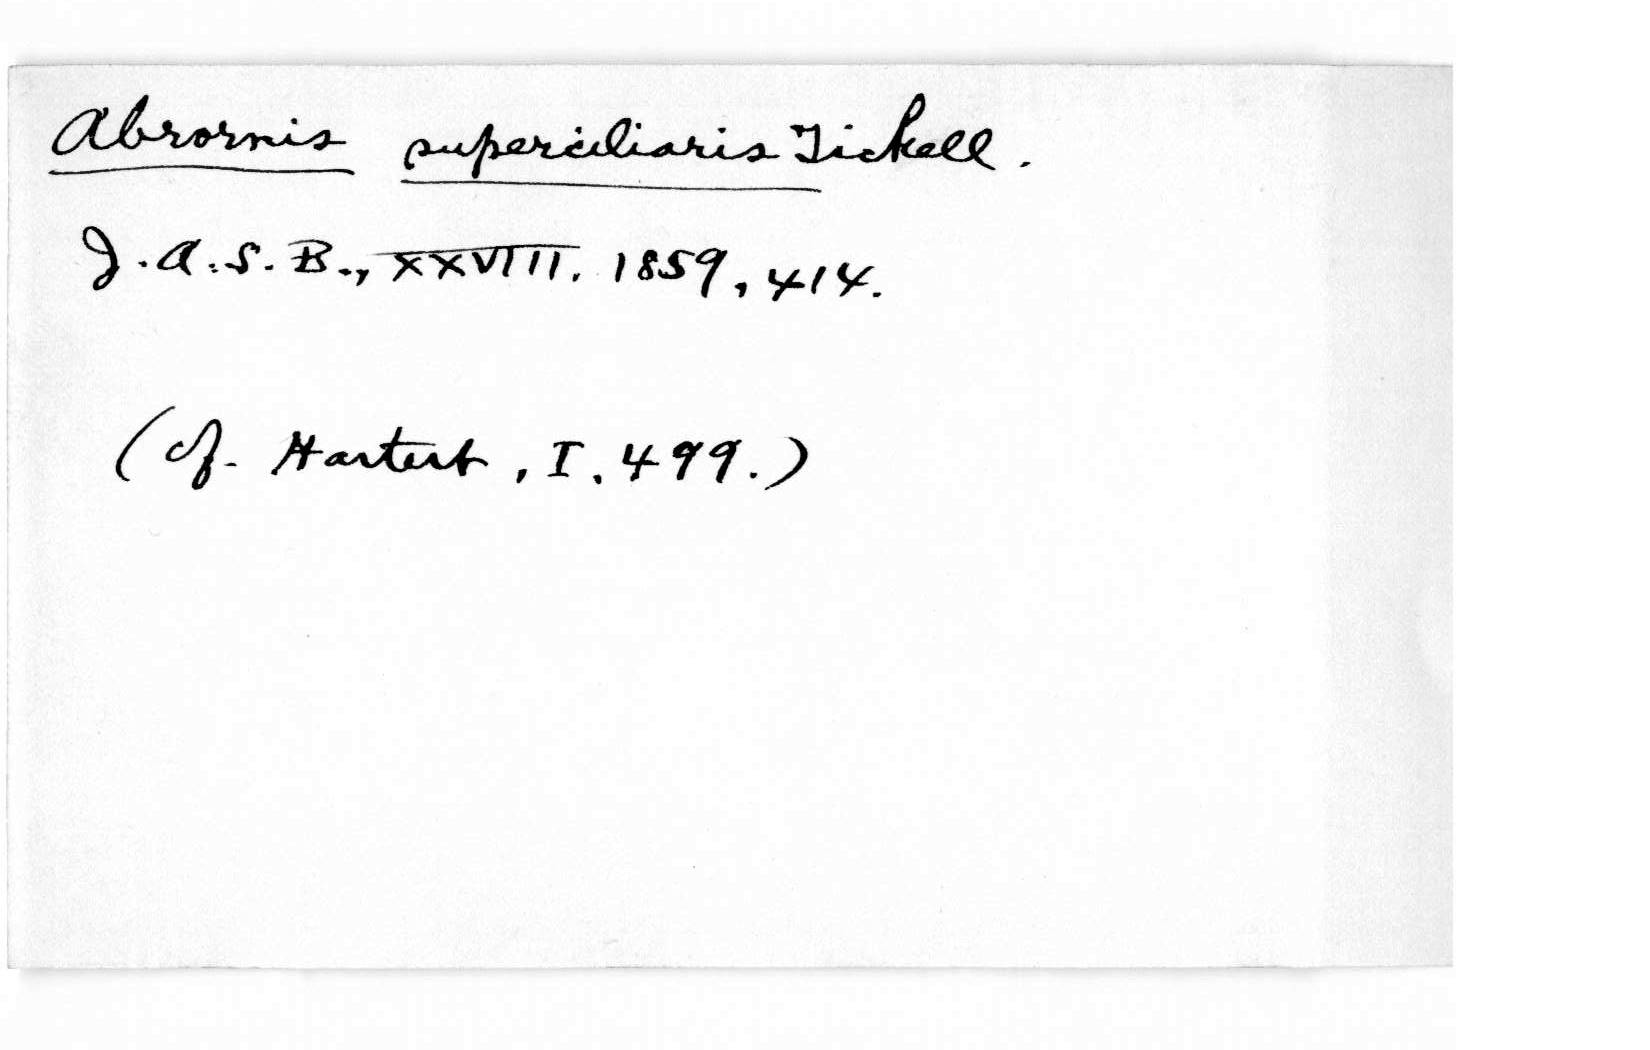 Abrornis superciliaris Tickell.
J.A.S.B., XXVIII. 1859, 414.
(cf. Hartert, I. 499.)